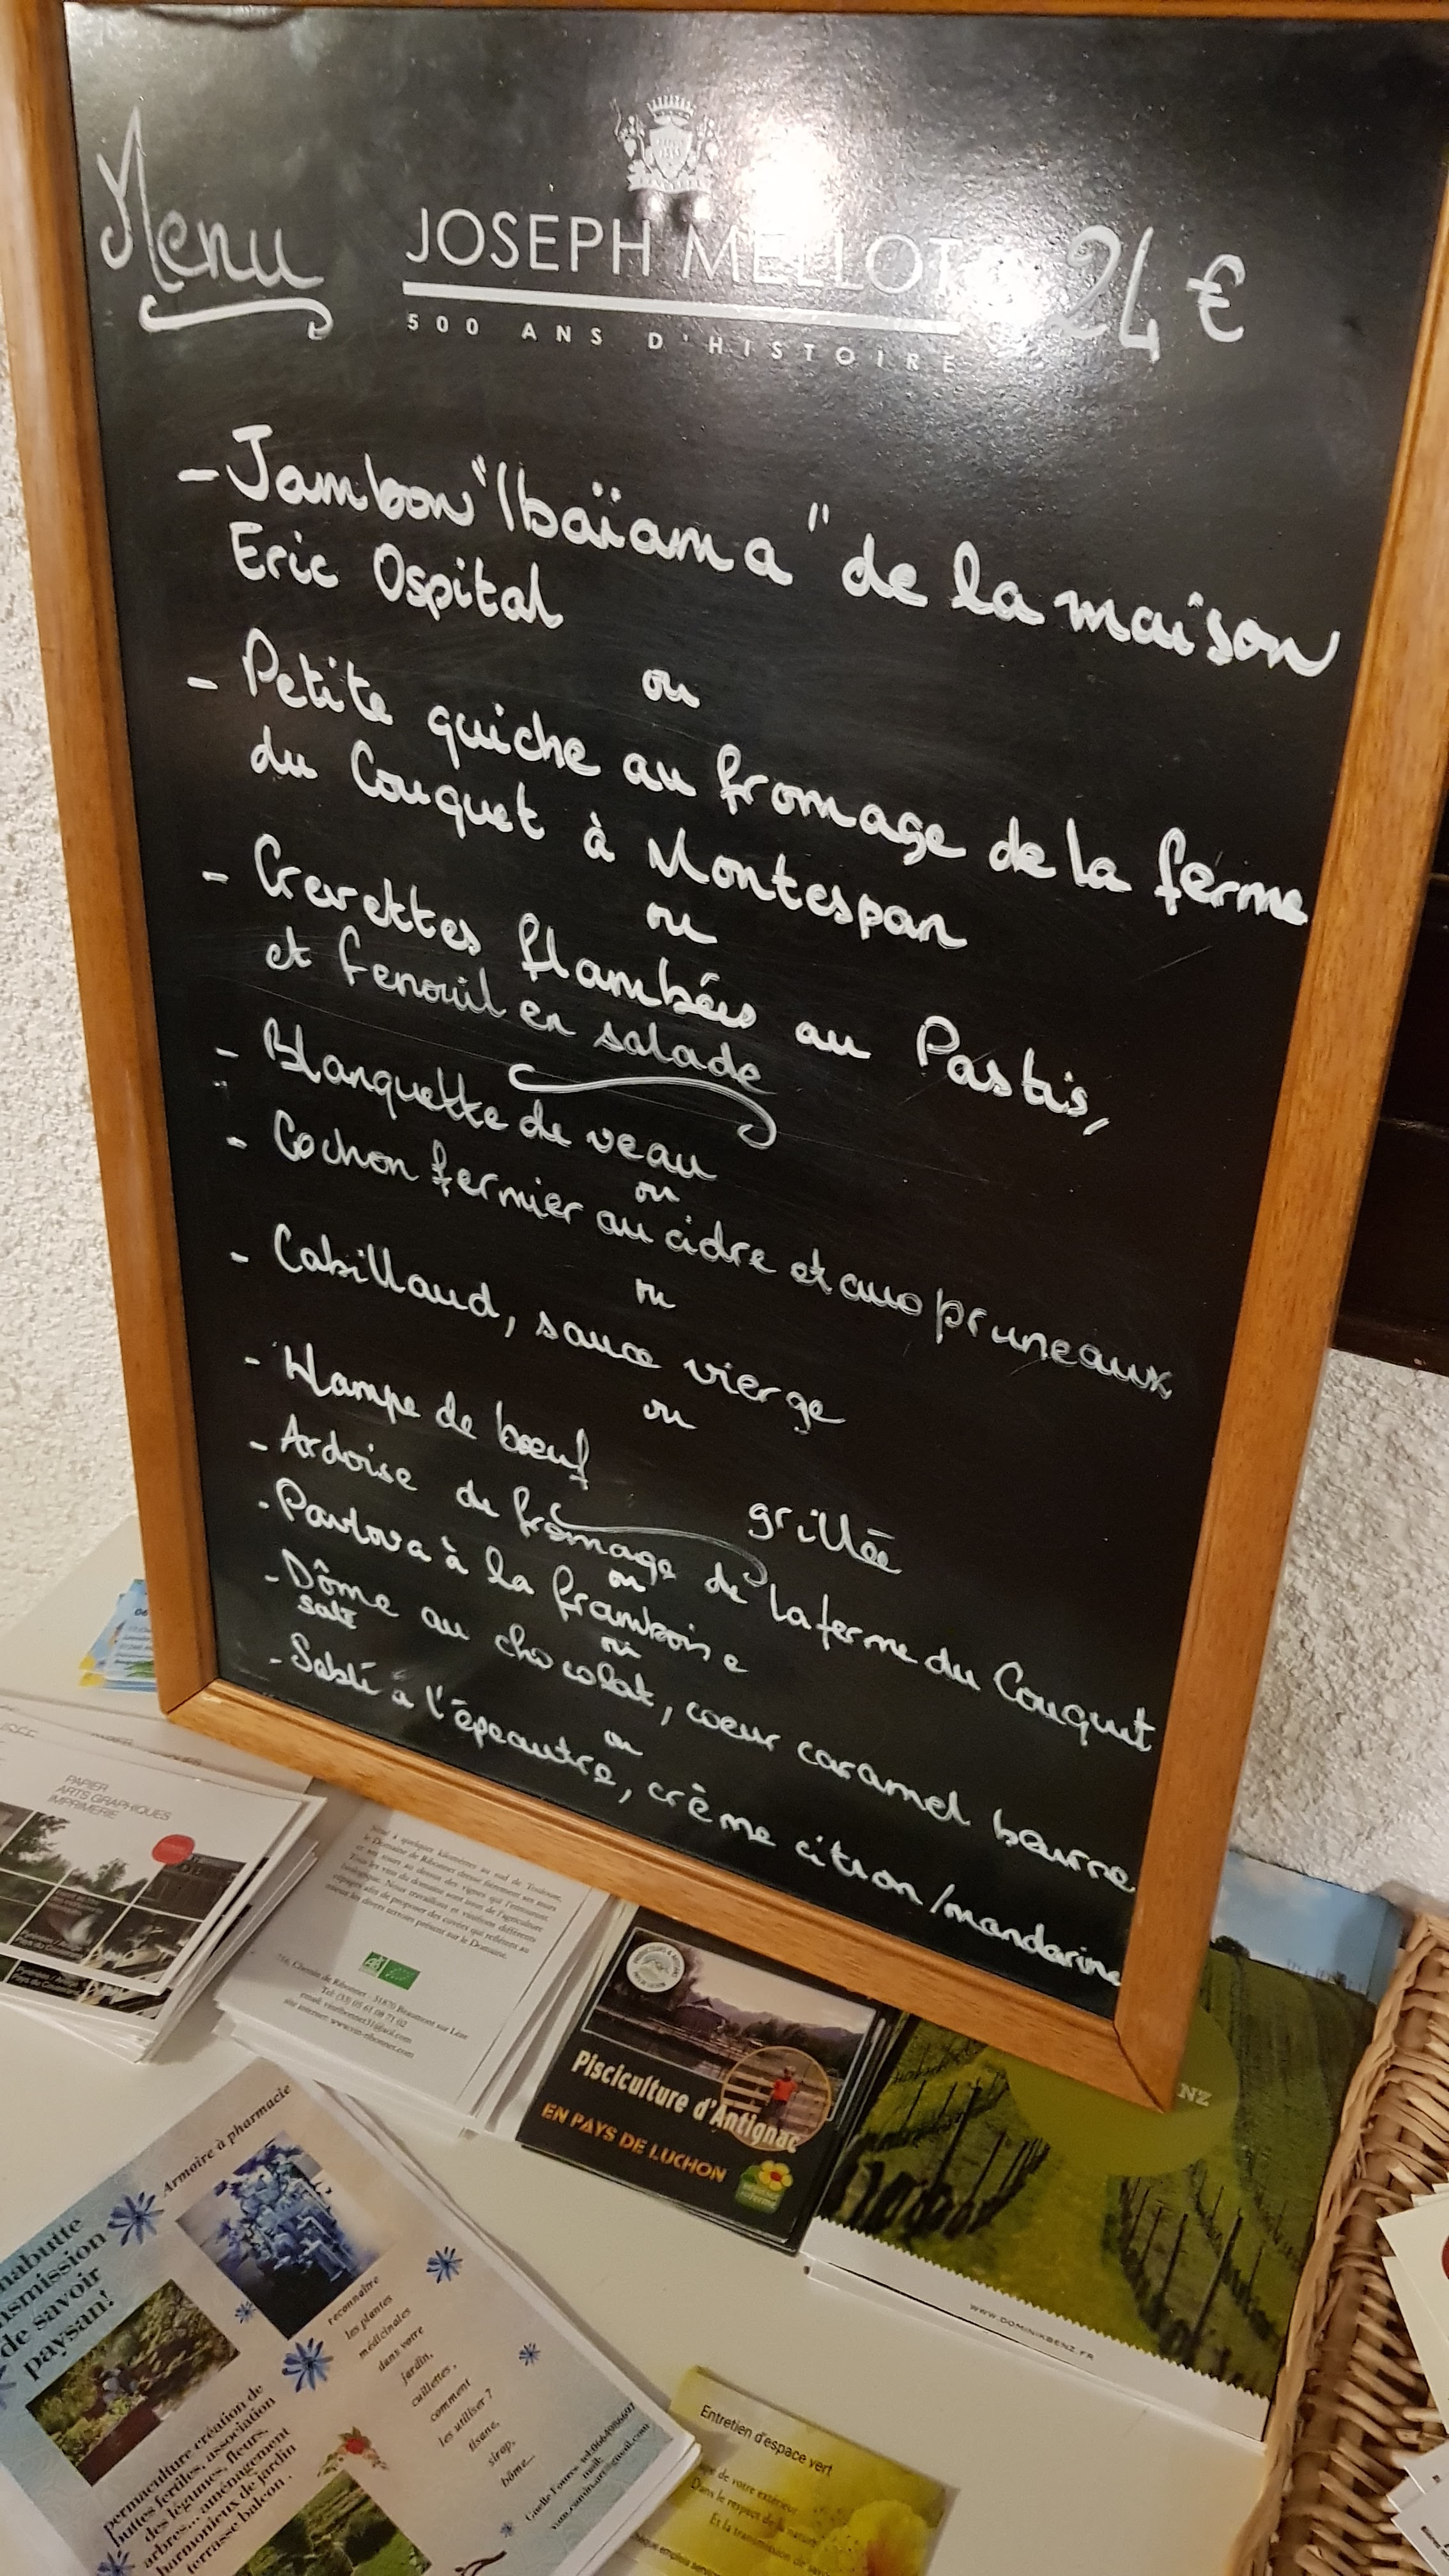 Menu
JOSEPH MELLOT
24 €
500 ANS D'HISTOIRE
- Jambon "Ibaïama" de la maison
Eric Ospital
ou
- Petite quiche au fromage de la ferme
du Couquet à Montespan
ou
- Crevettes flambées au Pastis,
et fenouil en salade
- Blanquette de veau
ou
- Cochon fermier au cidre et aux pruneaux
ou
- Cabillaud, sauce vierge
ou
- Hampe de bœuf grillée
- Ardoise de fromage de la ferme du Couquet
ou
- Pavlova à la framboise
ou
- Dôme au chocolat, coeur caramel beurre
salé
ou
- Sablé à l'épeautre, crème citron/mandarine
06
PAPIER
ARTS GRAPHIQUES
IMPRIMERIE
Situé à quelques kilomètres au sud de Toulouse,
756, Chemin de Ribonnet - 31870 Beaumont sur Lèze
Tel: (33) 05 61 08 71 02
site internet: www.vin-ribonnet.com
Pisciculture d'Antignac
EN PAYS DE LUCHON
NZ
WWW.DOMINIKBENZ.FR
Armoire à pharmacie
nabutte
nsmission
de savoir
paysan!
reconnaître
les plantes
médicinales
dans votre
jardin,
cuillettes,
comment
les utiliser ?
tisane,
sirop,
bôme...
permaculture création de
buttes fertiles, association
des légumes, fleurs,
arbres... aménagement
harmonieux de jardin
terrasse balcon.
Entretien d'espace vert
de votre extérieur
Dans le respect de la nature
Et la transmission de